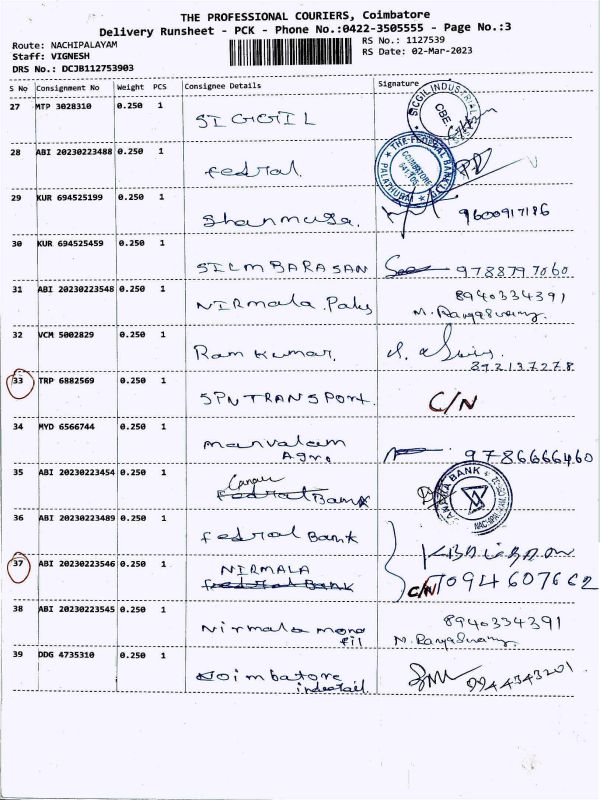 THE PROFESSIONAL COURIERS, Coimbatore
Delivery Runsheet - PCK - Phone No.:0422-3505555 - Page No.:3
Route: NACHIPALAYAM
RS No.: 1127539
Staff: VIGNESH
RS Date: 02-Mar-2023
DRS No.: DCJB112753903
S No Consignment No Weight PCS Consignee Details Signature
27 MTP 3028310 0.250 1 SIGGIL
SICGIL INDUSTRIAL CBE
28 ABI 20230223488 0.250 1 Fedral.
THE FEDERAL BANK LTD COIMBATORE 641 105 PALATHURAI
29 KUR 694525199 0.250 1 Shanmuga. 9600917186
30 KUR 694525459 0.250 1 SILMBARASAN 9788797060
31 ABI 20230223548 0.250 1 NIRmala Poly 8940334391
M. Rangaswamy
32 VCM 5002829 0.250 1 Ram Kumar.
33 TRP 6882569 0.250 1 SPN TRANSPORT. C/N
34 MYD 6566744 0.250 1 manvalam 9786666460
Agro.
35 ABI 20230223454 0.250 1 Canara
Fedral Bank
CANARA BANK
36 ABI 20230223489 0.250 1 Fedral Bank
37 ABI 20230223546 0.250 1 NIRMALA
Fedral Bank C/N 7094607662
38 ABI 20230223545 0.250 1 Nirmala mono 8940334391
fil M. Rangaswamy
39 DDG 4735310 0.250 1 Coimbatore 9944343201